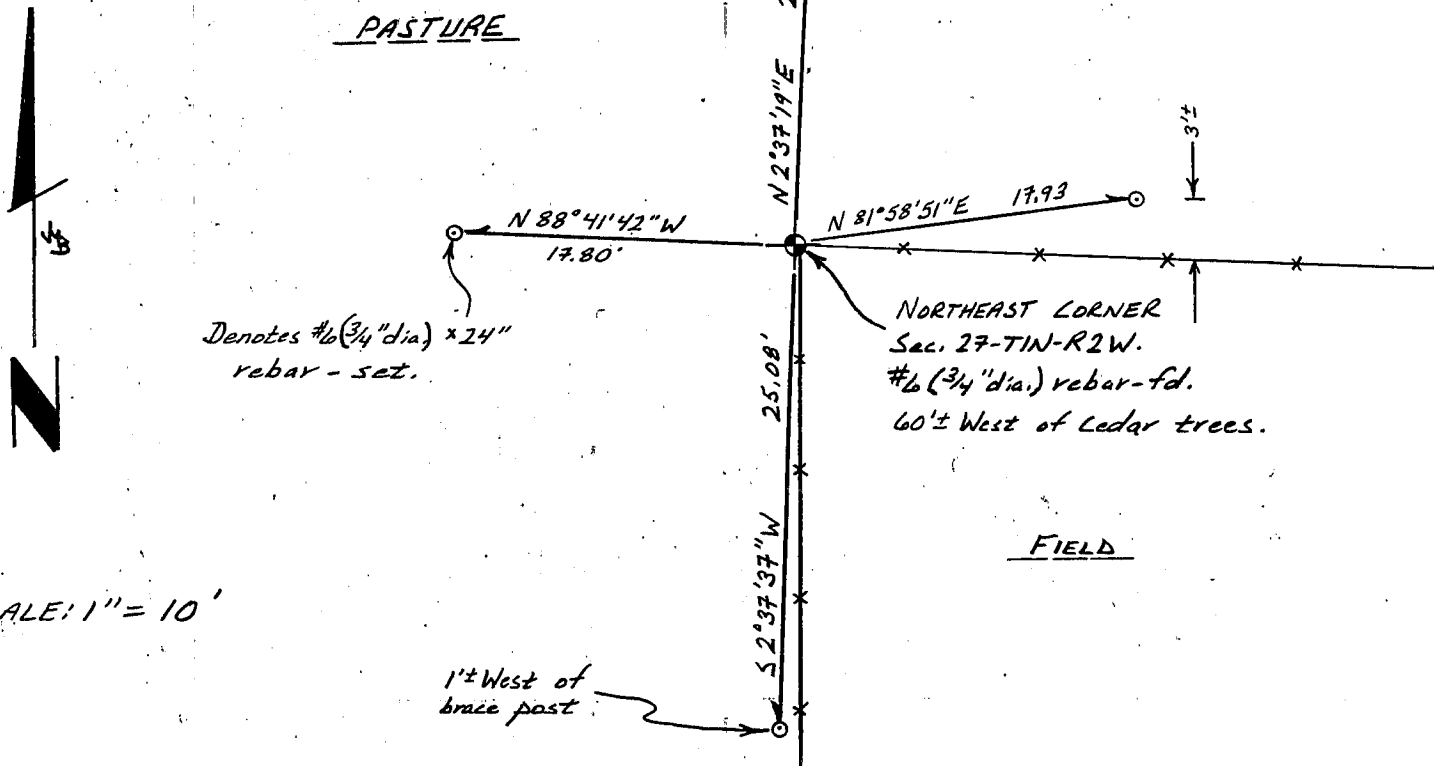 PASTURE
N 2°37'19"E 2
3'±
N 88°41'42"W
17.80'
N 81°58'51"E 17.93
Denotes #6 (3/4" dia) x 24"
rebar - set.
NORTHEAST CORNER
Sec. 27-T1N-R2W.
#6 (3/4" dia.) rebar-fd.
60'± West of Cedar trees.
25.08'
S 2°37'37"W
N
FIELD
ALE: 1" = 10'
1'± West of
brace post